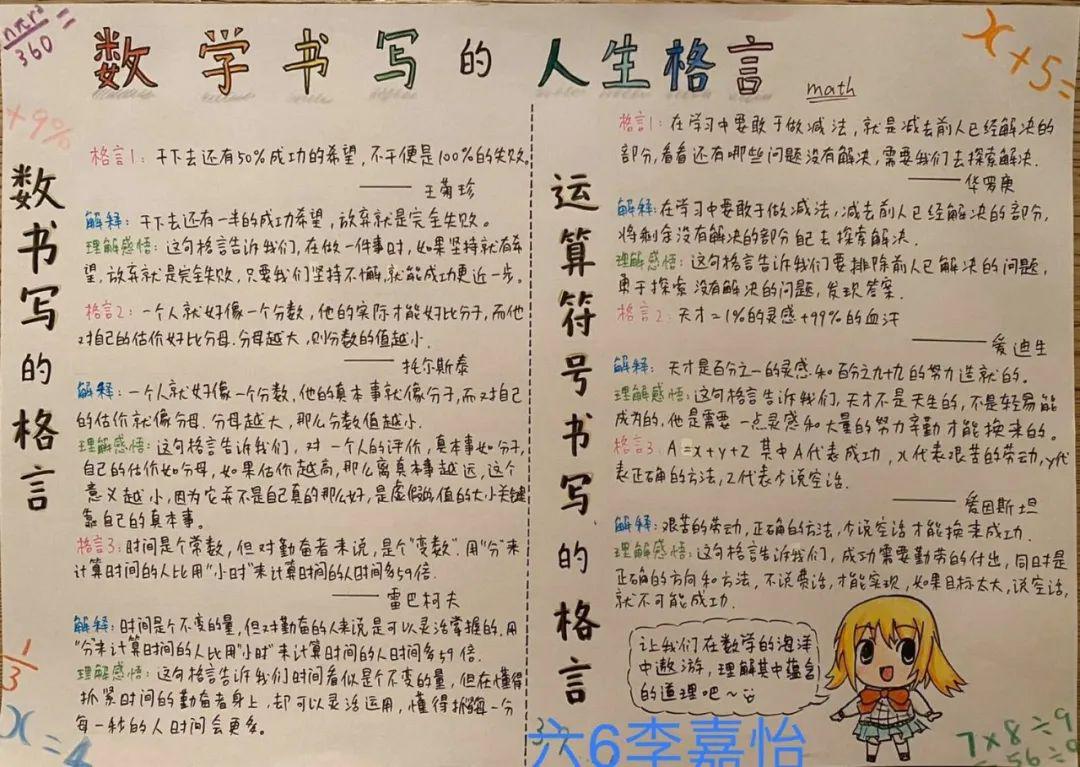 nπr²
360
=
数学书写的人生格言 math
x+5=
+9%
数书写的格言
格言1：干下去还有50%成功的希望，不干便是100%的失败。
—— 王菊珍
解释：干下去还有一半的成功希望，放弃就是完全失败。
理解感悟：这句格言告诉我们，在做一件事时，如果坚持就有希
望，放弃就是完全失败，只要我们坚持不懈，就能成功更近一步。
格言2：一个人就好像一个分数，他的实际才能好比分子，而他
对自己的估价好比分母，分母越大，则分数的值越小。
—— 托尔斯泰
解释：一个人就好像一个分数，他的真本事就像分子，而对自己
的估价就像分母，分母越大，那么分数值越小。
理解感悟：这句格言告诉我们，对一个人的评价，真本事如分子，
自己的估价如分母，如果估价越高，那么离真本事越远，这个
意义越小，因为它并不是自己真的那么好，是虚假的值的大小关键
靠自己的真本事。
格言3：时间是个常数，但对勤奋者来说，是个"变数"。用"分"来
计算时间的人比用"小时"来计算时间的人时间多59倍。
—— 雷巴柯夫
解释：时间是个不变的量，但对勤奋的人来说是可以灵活掌握的。用
"分"来计算时间的人比用"小时"来计算时间的人时间多59倍。
理解感悟：这句格言告诉我们时间看似是个不变的量，但在懂得
抓紧时间的勤奋者身上，却可以灵活运用，懂得抓每一分
每一秒的人时间会更多。
1/3
x=4
运算符号书写的格言
格言1：在学习中要敢于做减法，就是减去前人已经解决的
部分，看看还有哪些问题没有解决，需要我们去探索解决。
—— 华罗庚
解释：在学习中要敢于做减法，减去前人已经解决的部分，
将剩余没有解决的部分自己去探索解决。
理解感悟：这句格言告诉我们要排除前人已解决的问题，
勇于探索没有解决的问题，发现答案。
格言2：天才=1%的灵感+99%的血汗
—— 爱迪生
解释：天才是百分之一的灵感和百分之九十九的努力造就的。
理解感悟：这句格言告诉我们，天才不是天生的，不是轻易能
成为的，他是需要一点灵感和大量的努力辛勤才能换来的。
格言3：A=x+y+z 其中A代表成功，x代表艰苦的劳动，y代
表正确的方法，z代表少说空话。
—— 爱因斯坦
解释：艰苦的劳动，正确的方法，少说空话才能换来成功。
理解感悟：这句格言告诉我们，成功需要勤劳的付出，同时是
正确的方向和方法，不说费话，才能实现，如果目标太大，说空话，
就不可能成功。
让我们在数学的海洋
中遨游，理解其中蕴含
的道理吧～
六6李嘉怡
7×8÷9
=56÷9